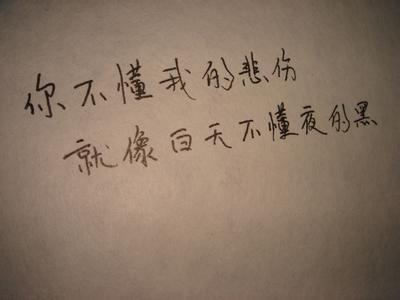 你不懂我的悲伤
就像白天不懂夜的黑